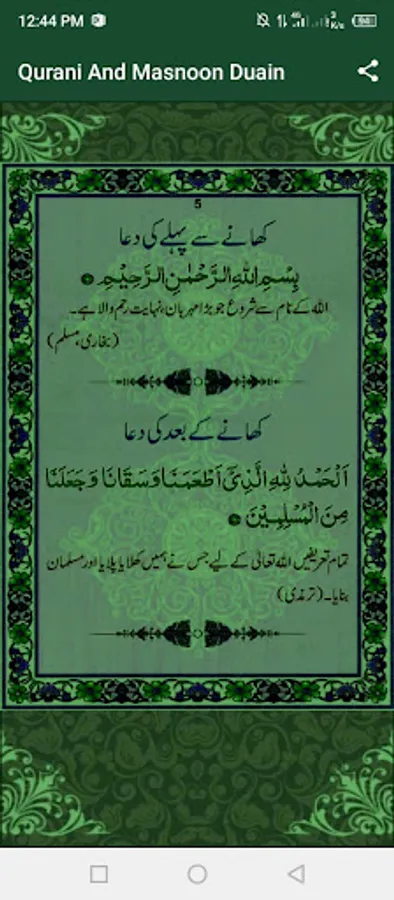 12:44 PM
Qurani And Masnoon Duain
5
کھانے سے پہلے کی دعا
بِسْمِ اللهِ الرَّحْمٰنِ الرَّحِيْمِ
اللہ کے نام سے شروع جو بڑا مہربان، نہایت رحم والا ہے۔
(بخاری، مسلم)
کھانے کے بعد کی دعا
اَلْحَمْدُ لِلّٰهِ الَّذِیْٓ اَطْعَمَنَا وَسَقَانَا وَجَعَلَنَا
مِنَ الْمُسْلِمِيْنَ
تمام تعریفیں اللہ تعالیٰ کے لیے جس نے ہمیں کھلایا پلایا اور مسلمان
بنایا۔ (ترمذی)